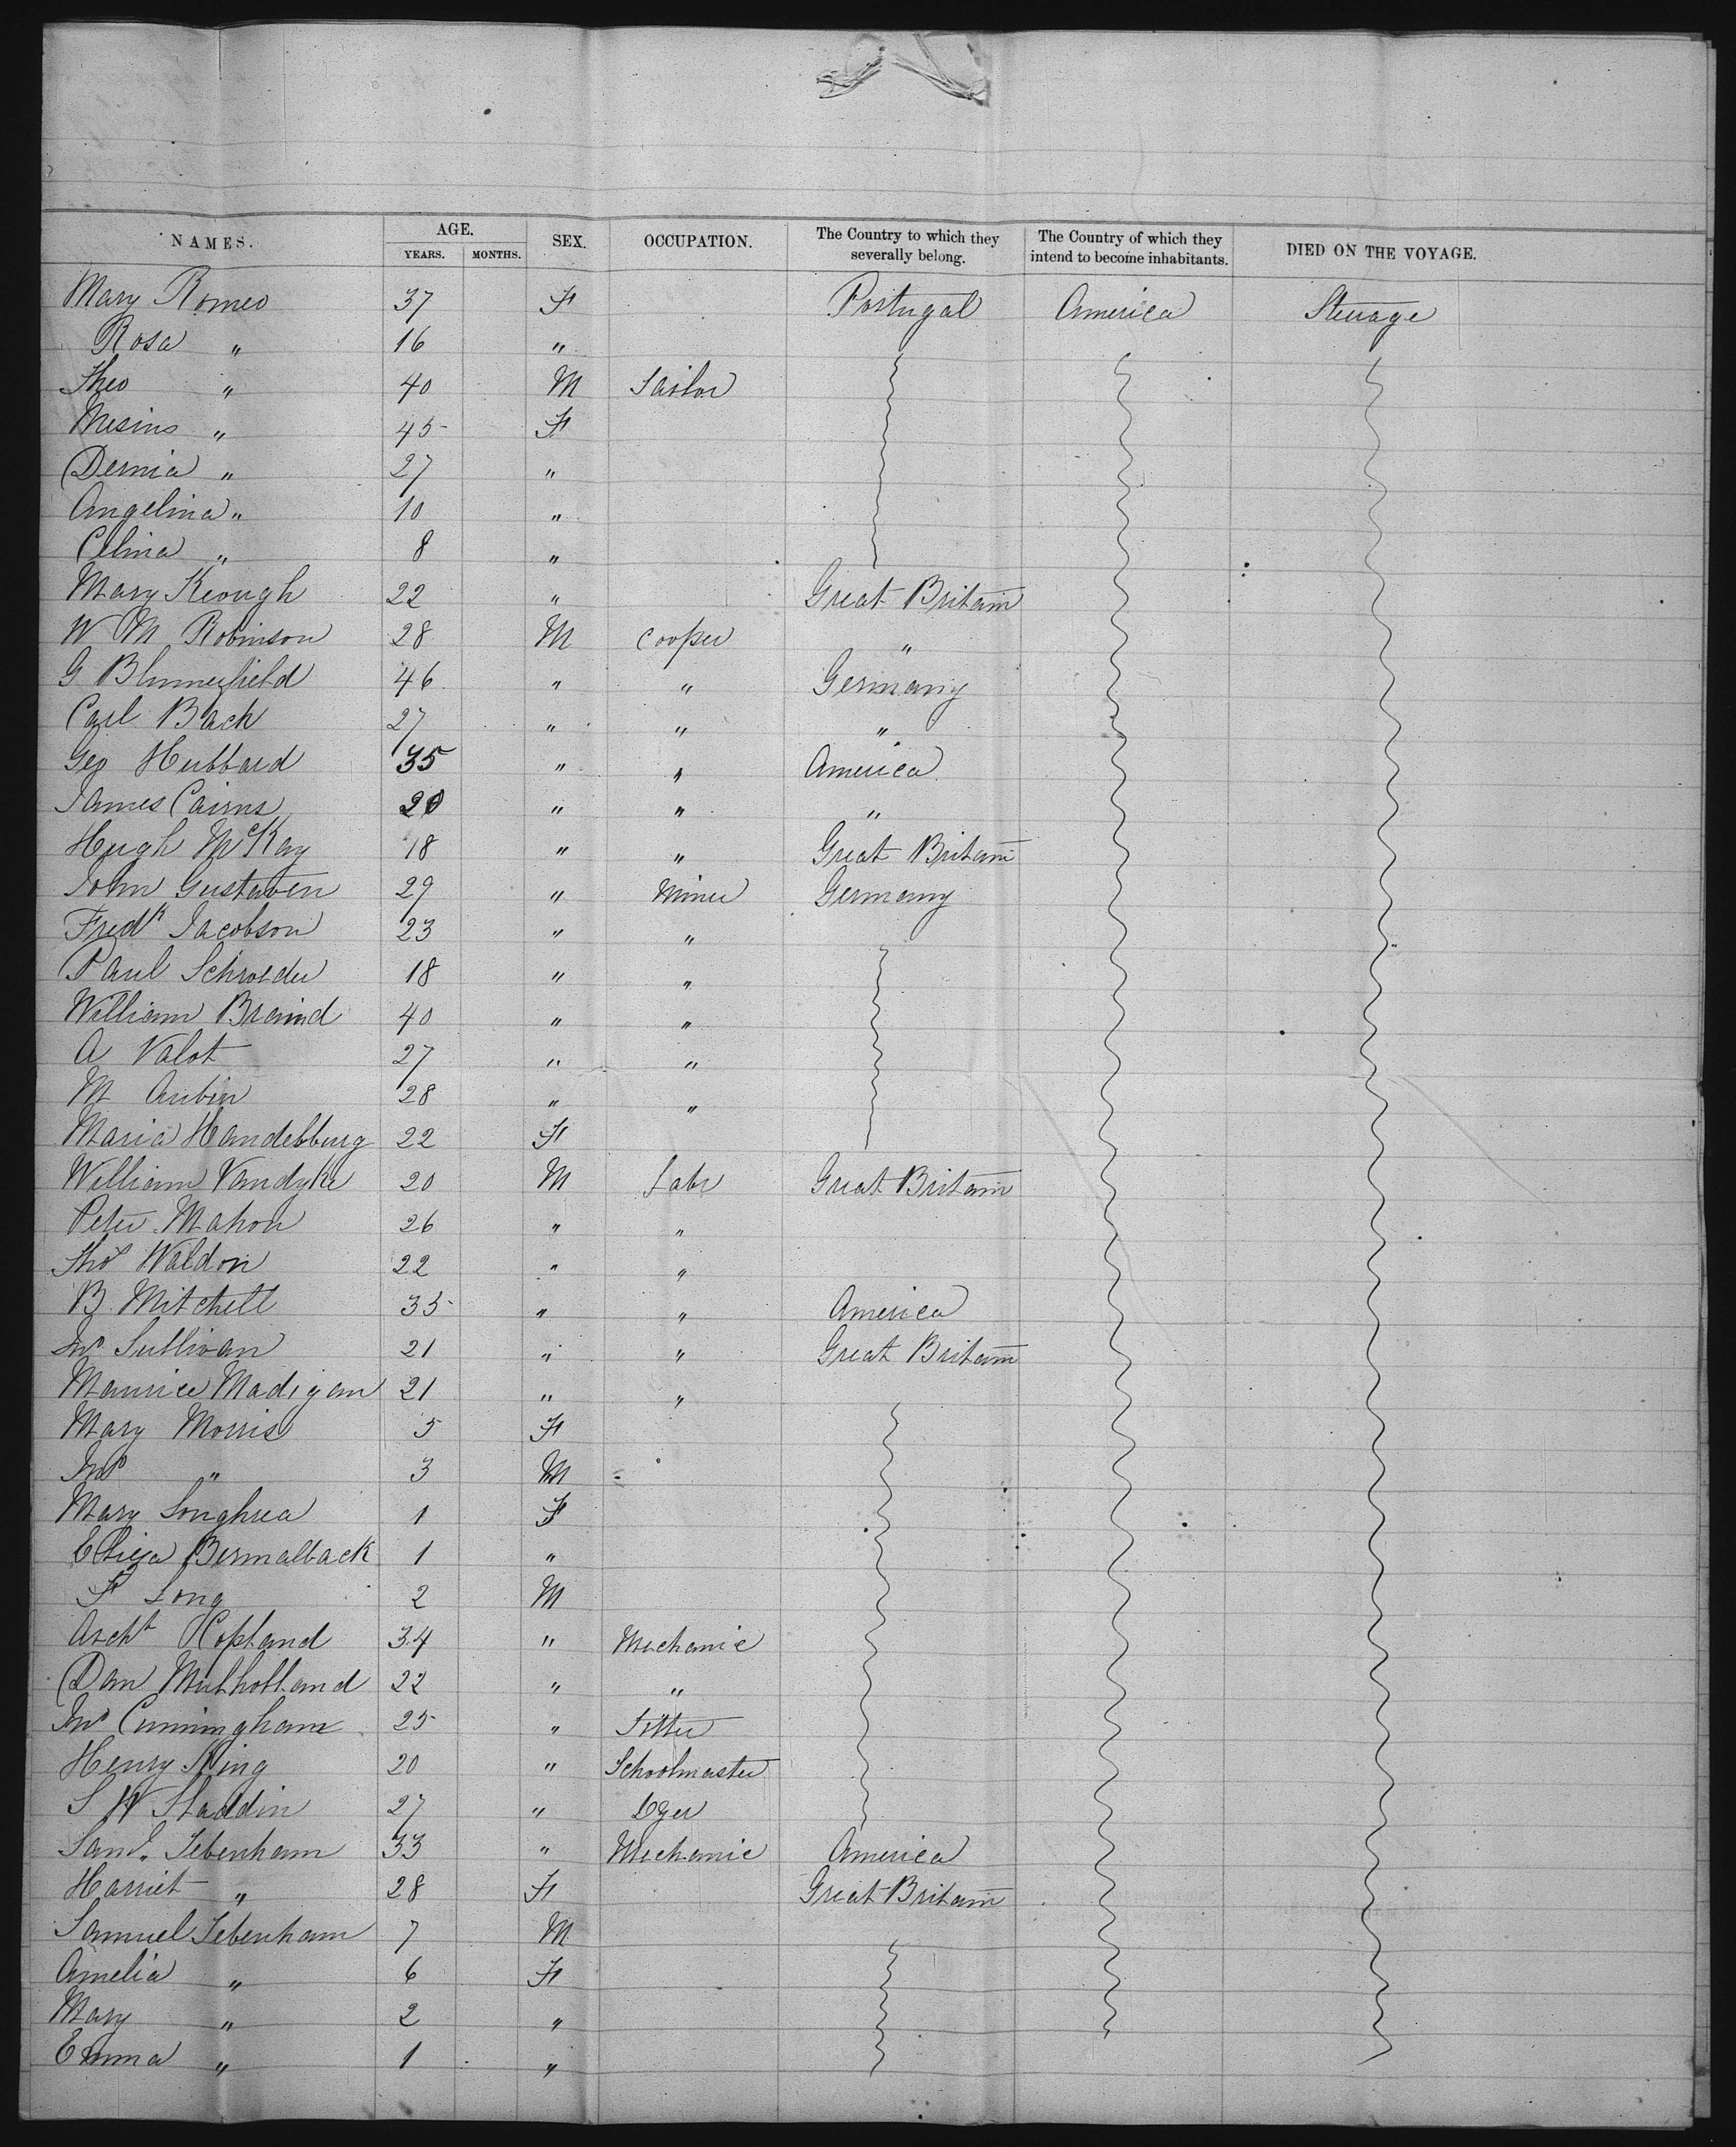 NAMES. AGE. SEX. OCCUPATION. The Country to which they severally belong. The Country of which they intend to become inhabitants. DIED ON THE VOYAGE.
YEARS. MONTHS.
Mary Romeo 37 F Portugal America Steerage
Rosa " 16 "
Theo " 40 M Sailor
Mesins " 45 F
Dernia " 27 "
Angelina " 10 "
Celina " 8 "
Mary Keough 22 " Great Britain
W M Robinson 28 M Cooper "
G Blumerfield 46 " " Germany
Carl Back 27 " " "
Geo Hubbard 35 " " America
James Cairns 20 " " "
Hugh McKay 18 " " Great Britain
John Gustaven 29 " Miner Germany
Fredk Jacobson 23 " "
Paul Schroeder 18 " "
William Braind 40 " "
A Valot 27 " "
M Aubin 28 " "
Maria Handebburg 22 F
William Vandyke 20 M Labr Great Britain
Peter Mahon 26 " "
Thos Waldon 22 " "
B Mitchell 35 " " America
Jno Sullivan 21 " " Great Britain
Maurice Madigan 21 " "
Mary Morris 5 F
Jno " 3 M
Mary Loughrea 1 F
Eliza Bermalback 1 "
F Long 2 M
Archd Hopland 34 " Mechanic
Dan Mulholland 22 " "
Jno Cunningham 25 " Fitter
Henry King 20 " Schoolmaster
S W Staddin 27 " Dyer
Saml. Tebenham 33 " Mechanic America
Harriet " 28 F Great Britain
Samuel Tebenham 7 M
Amelia " 6 F
Mary " 2 "
Emma " 1 "